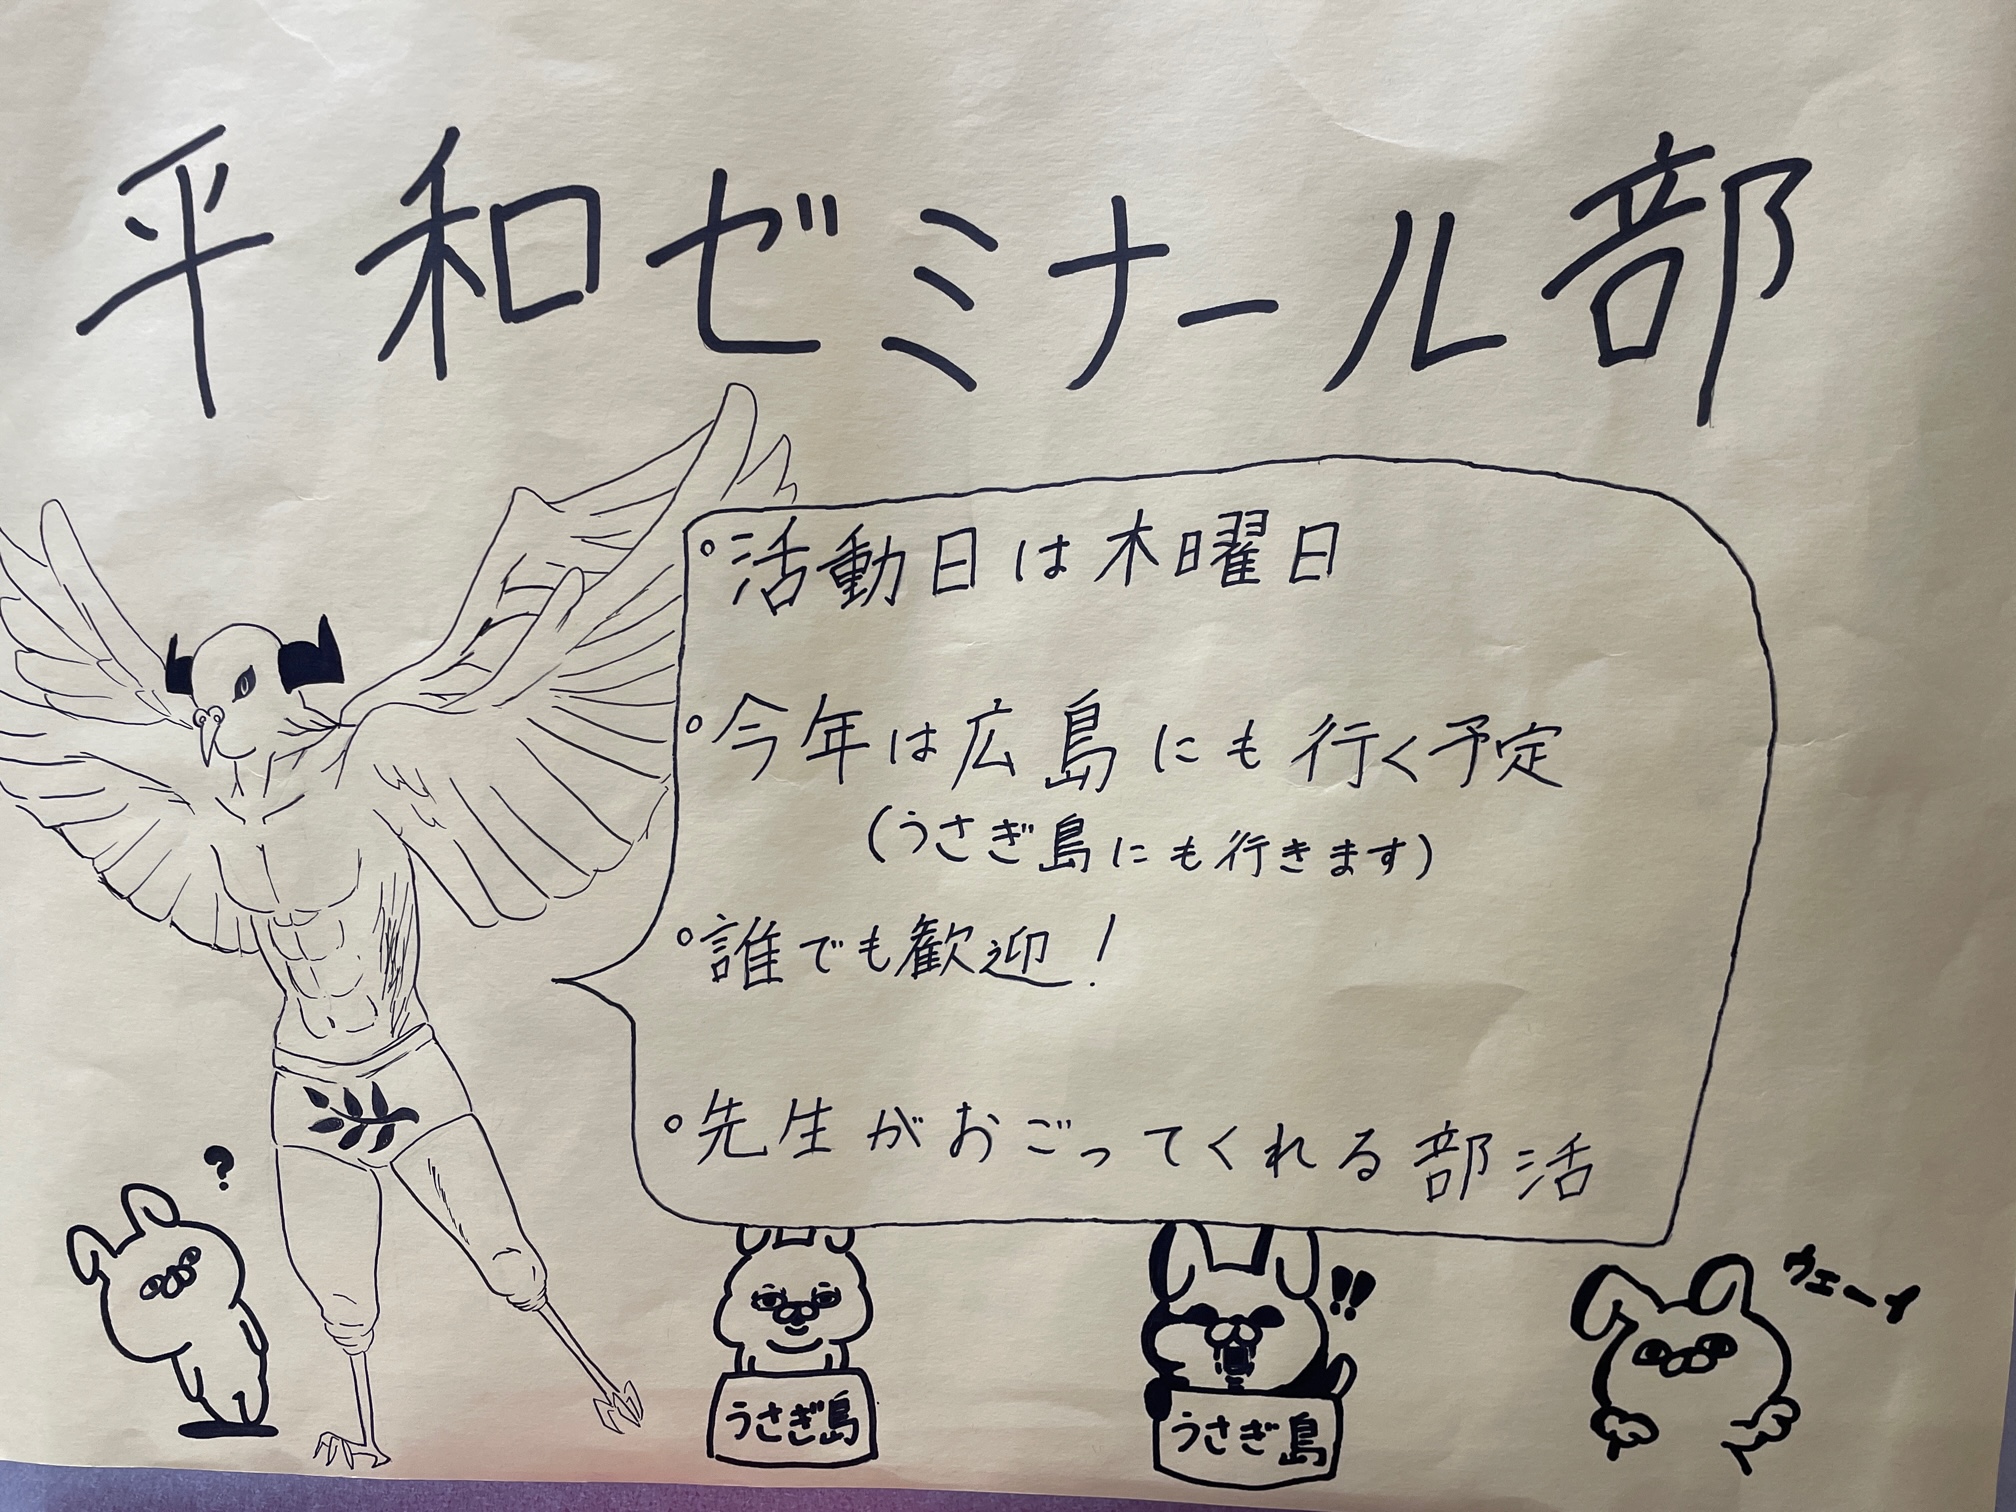 平和ゼミナール部
°活動日は木曜日
°今年は広島にも行く予定
(うさぎ島にも行きます)
°誰でも歓迎!
°先生がおごってくれる部活
?
うさぎ島
!!
うさぎ島
ウェーイ